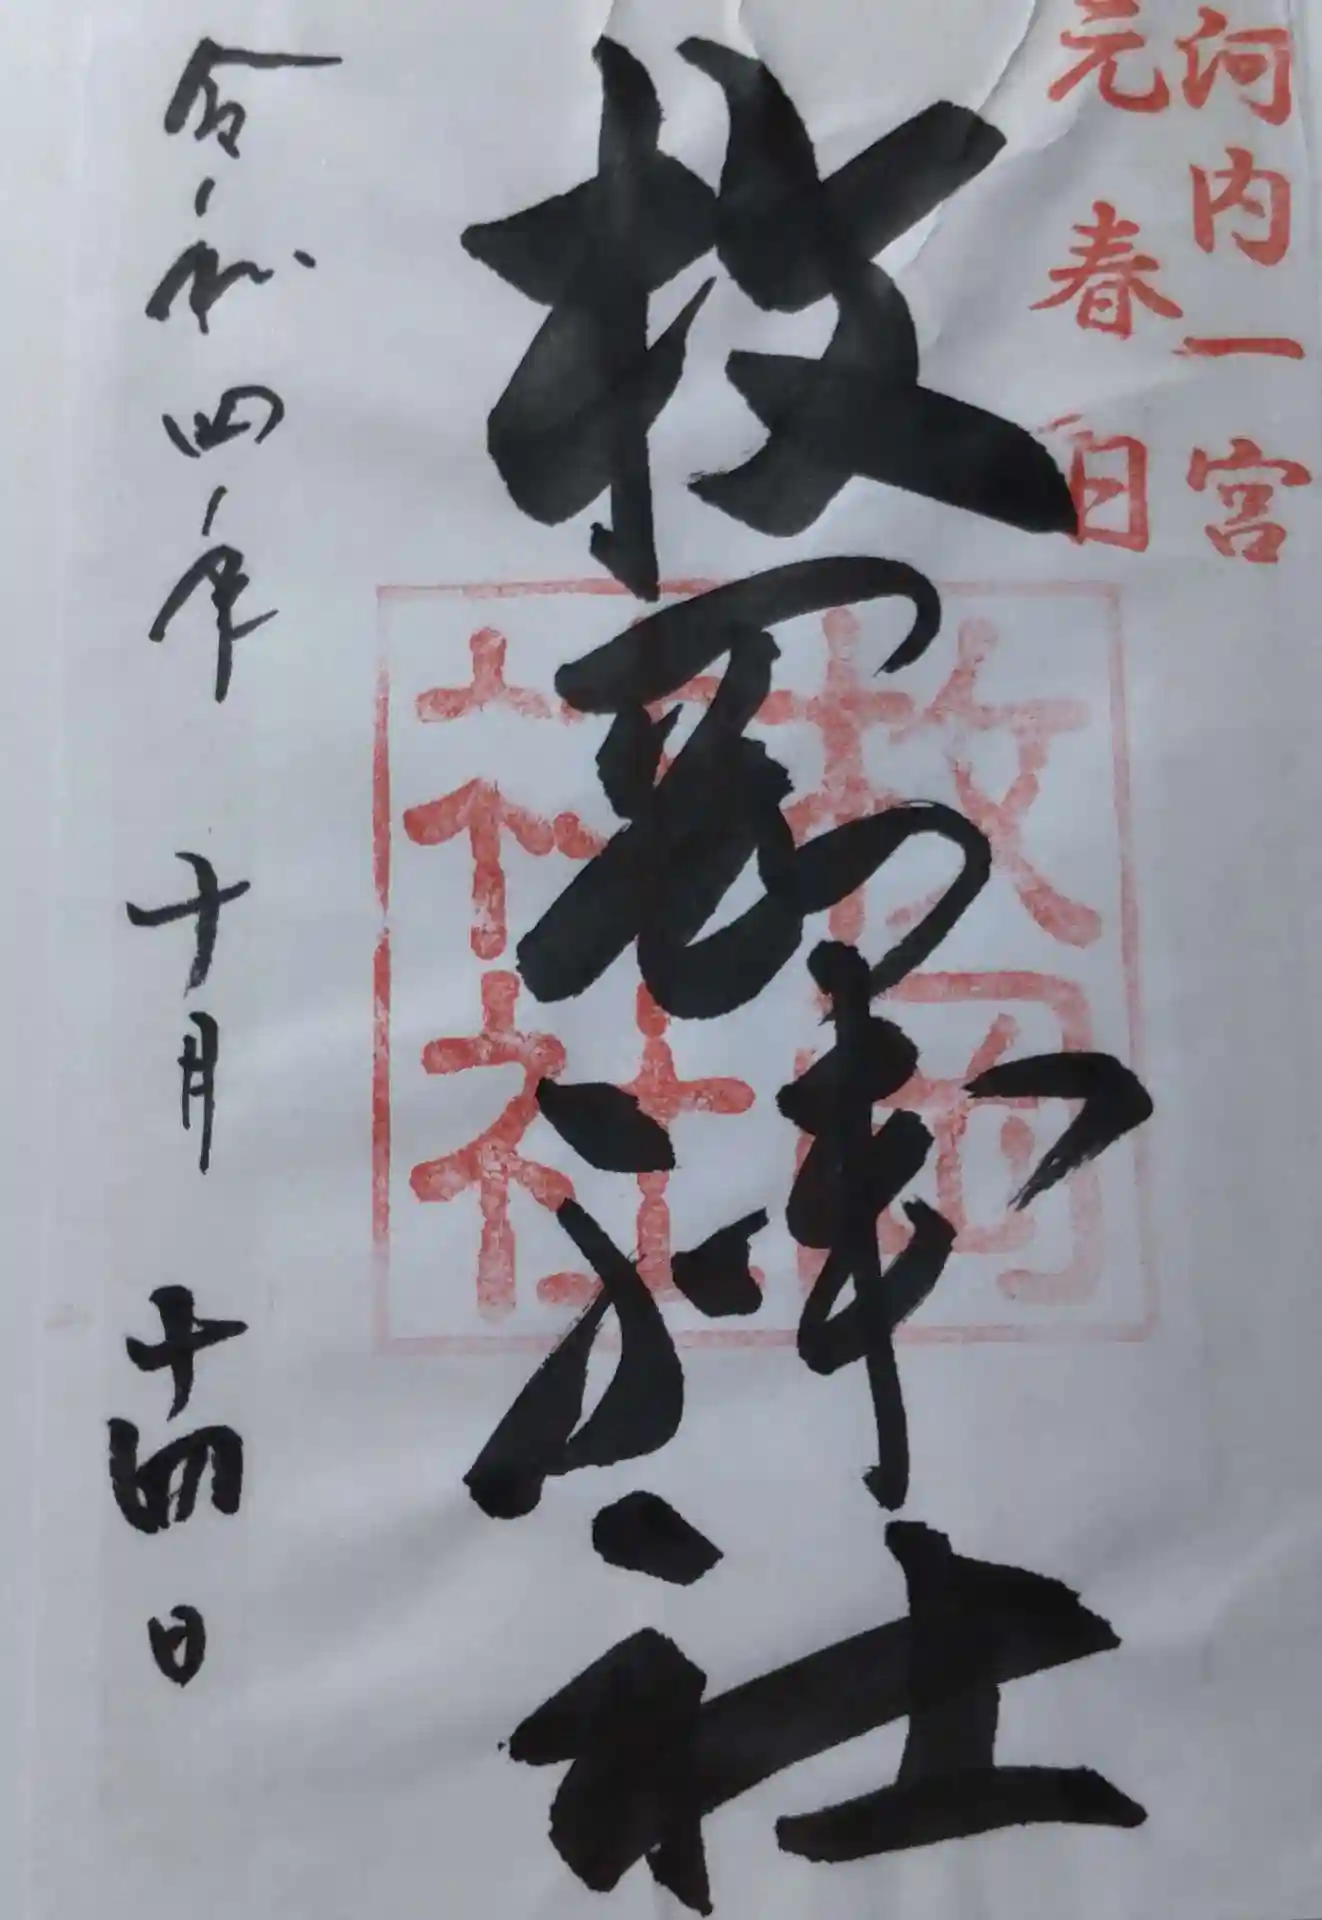 河内一宮
元春日
枚岡神社
枚岡神社
令和四年十月十四日